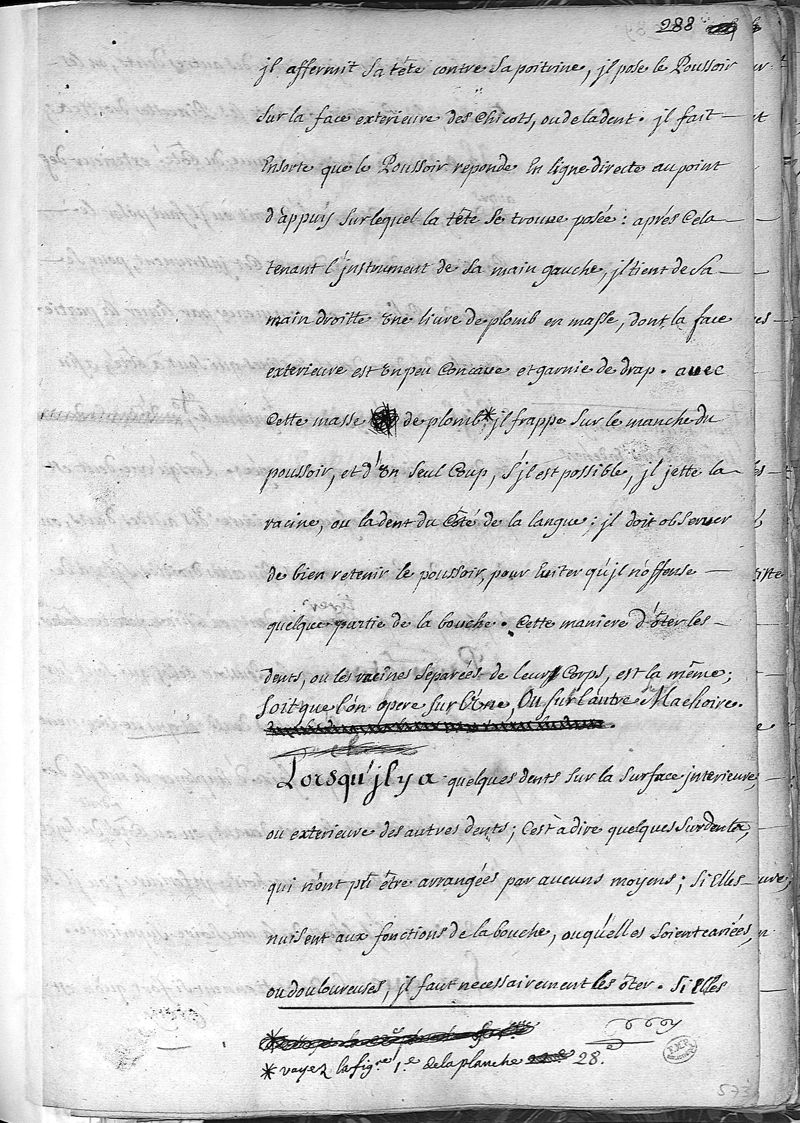 288
jl affermit sa tête contre sa poitrine, jl pose le Poussoir
sur la face exterieure des Chicots, ou de la dent. jl fait —
Ensorte que le Poussoir reponde En ligne directe au point
d'appuy sur lequel la tête se trouve posée : aprés Cela —
tenant l'jnstrument de sa main gauche, jl tient de Sa —
main droitte une livre de plomb en masse, dont la face
exterieure est un peu Concave et garnie de drap. avec
Cette masse de plomb * jl frappe sur le manche du
poussoir, et d'un seul Coup, s'jl est possible, jl jette la —
racine, ou la dent du Côté de la langue ; jl doit observer
de bien retenir le poussoir, pour Eviter qu'jl n'offense —
quelque partie de la bouche. Cette maniere d'ôter les —
dents, ou les racines separées de leur Corps, est la même ;
soit que l'on opere sur l'Une, Ou sur l'autre Machoire.
Lorsqu'jl y a quelques dents sur la surface jnterieure,
ou exterieure des autres dents ; C'est à dire quelques surdents,
qui n'ont pû être arrangées par aucuns moyens ; si Elles
nuisent aux fonctions de la bouche, ou qu'elles soient cariées,
ou douloureuses, jl faut necessairement les ôter. Si Elles
* voyez la fig.re 1.e de la planche 28.
573